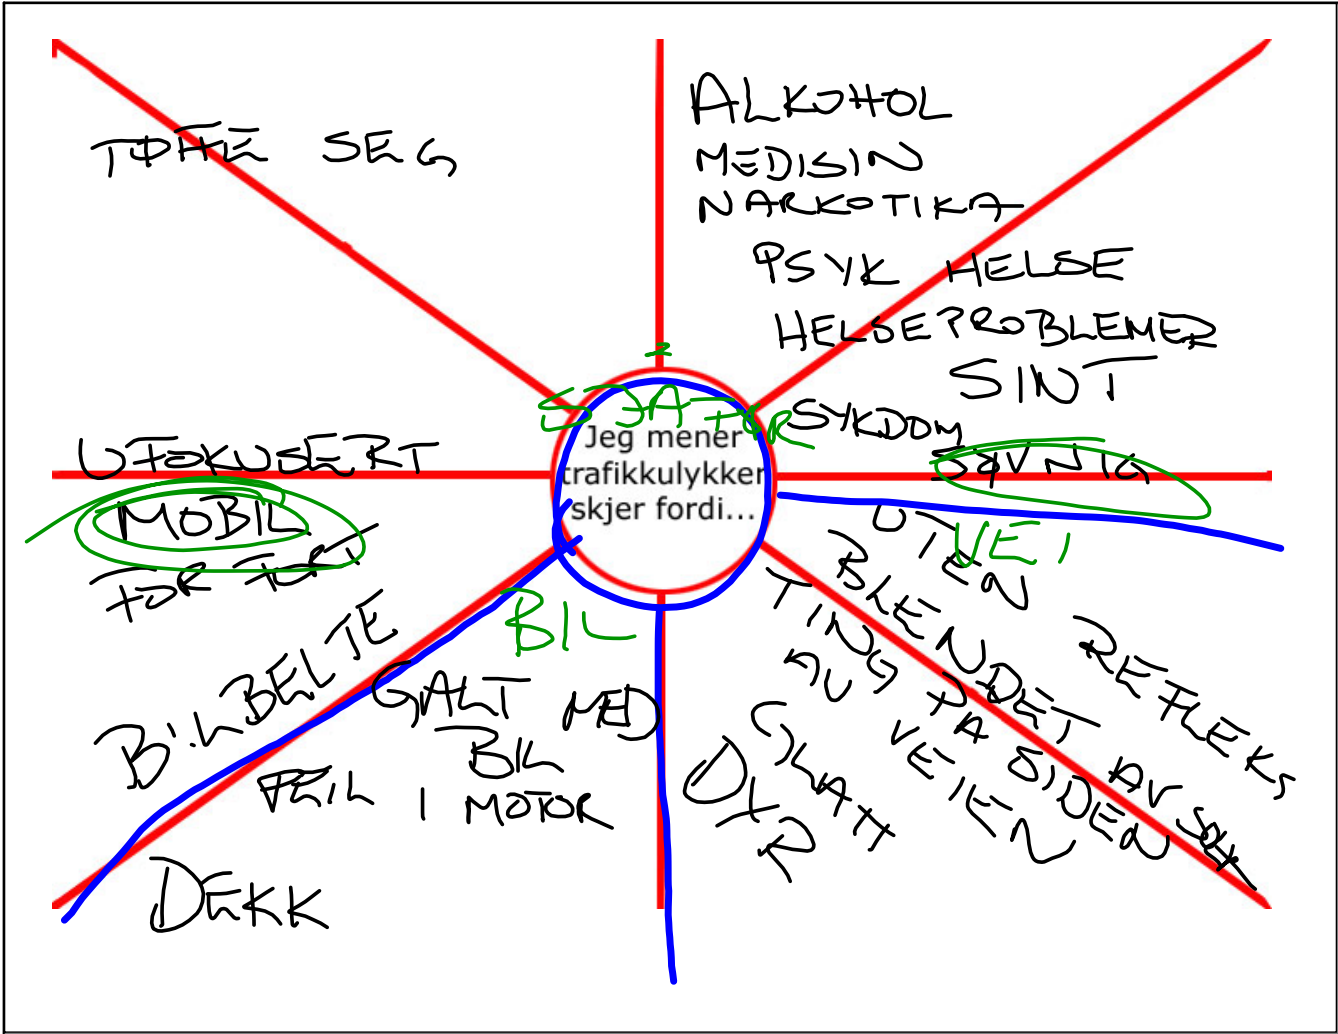 TØFFE SEG
ALKOHOL
MEDISIN
NARKOTIKA
PSYK HELSE
HELSEPROBLEMER
SINT
SYKDOM
SØVNIG
SJÅFØR
Jeg mener
trafikkulykker
skjer fordi...
UFOKUSERT
MOBIL
FOR FORT
BILBELTE
BIL
GALT MED
BIL
FEIL I MOTOR
DEKK
VEI
UTEN REFLEKS
BLENDET AV SOL
TING PÅ SIDEN
AV VEIEN
GLATT
DYR